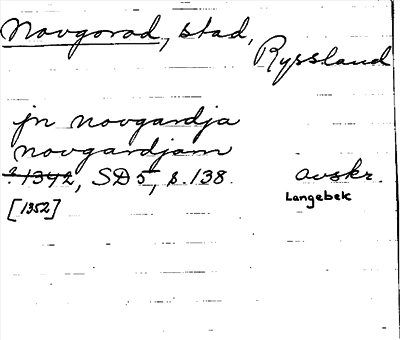 Novgorod, stad,
Ryssland
jn novgardja
novgardjam
? 1342, SD 5, s. 138. avskr.
[1352] Langebek